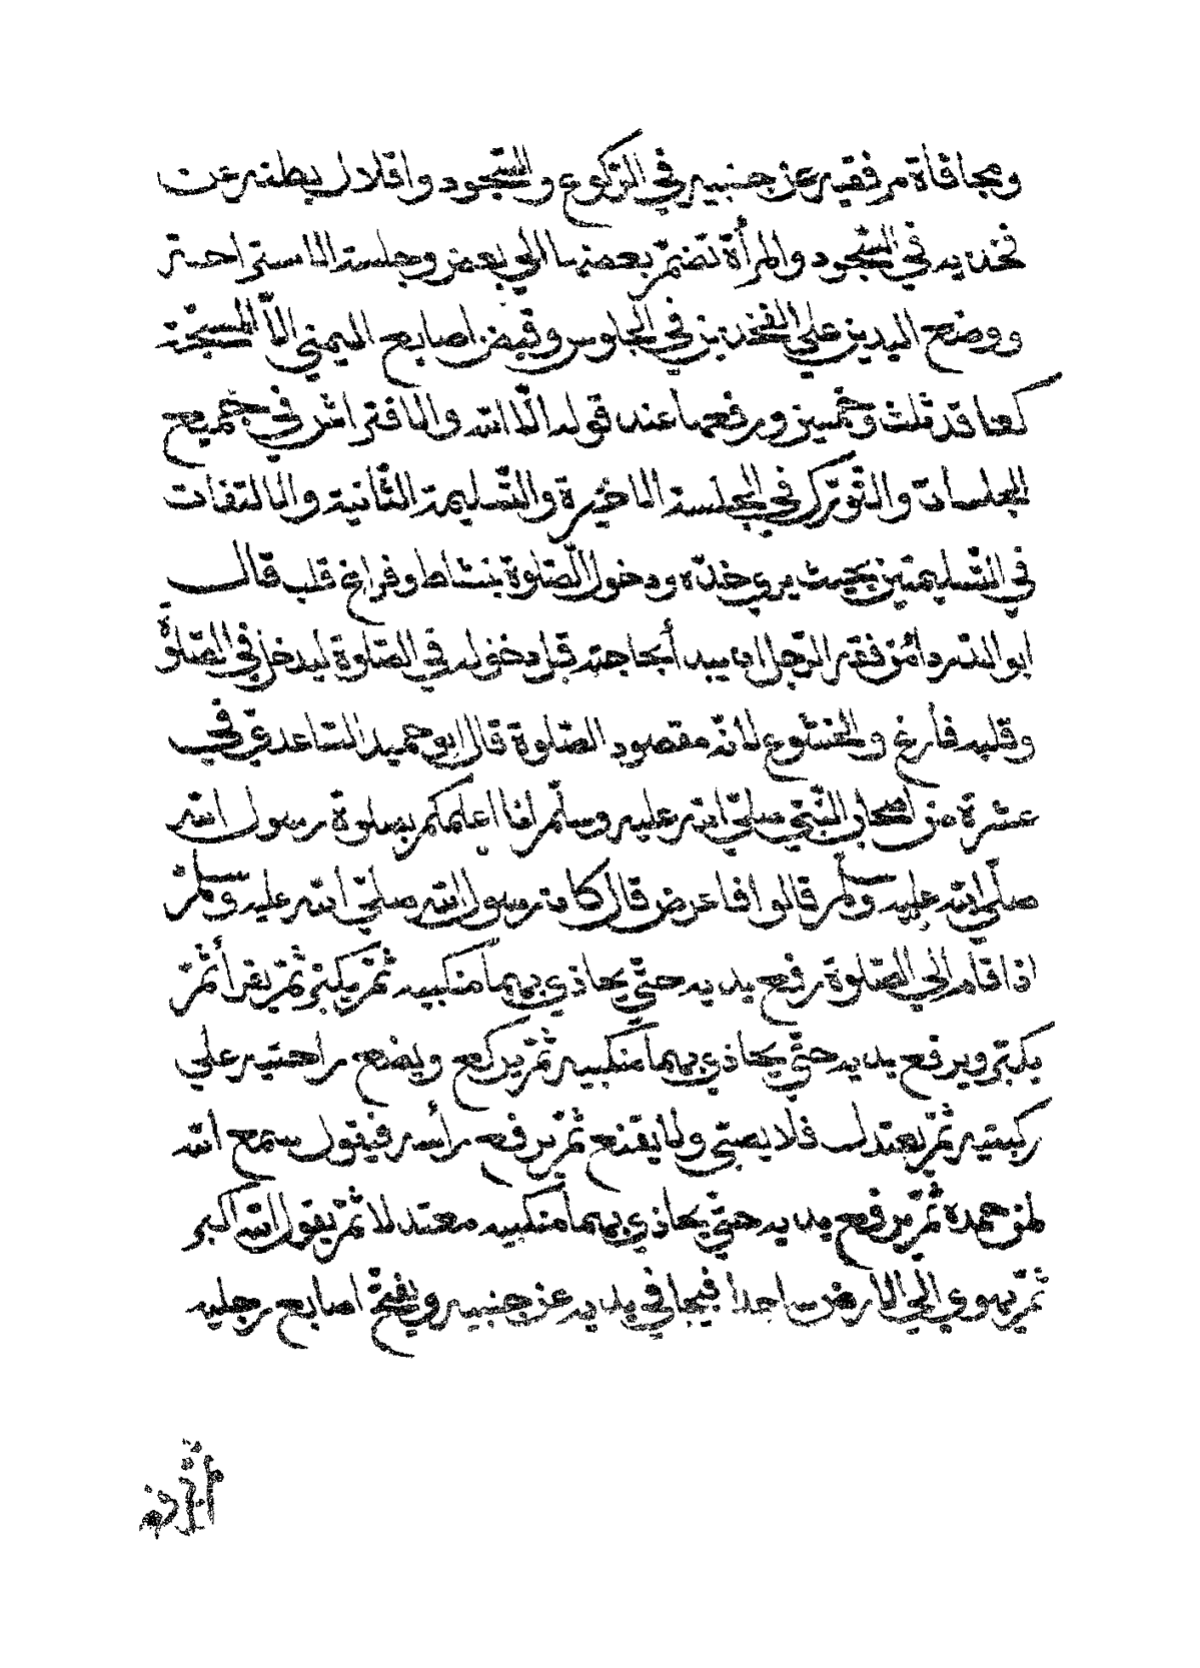 ومجافاة مرفقيه عن جنبيه في الرّكوع والسّجود واقلال بطنه عن
فخذيه في السّجود والمرأة تضمّ بعضها الي بعض وجلسة الاستراحة
ووضع اليدين علي الفخذين في الجلوس وقبض اصابع اليمني الّا المسبّحة
كعاقد ثلث وخمسين ورفعها عند قوله الّا الله والافتراش في جميع
الجلسات والتّورّك في الجلسة الاخيرة والتّسليمة الثّانية والالتفات
في التّسليمتين بحيث يري خدّه ودخول الصّلوة بنشاط وفراغ قلب قال
ابو الدّرداء من فقه الرّجل ان يبدأ بحاجته قبل دخوله في الصّلوة ليدخل في الصّلوة
وقلبه فارغ والخشوع لانّه مقصود الصّلوة قال ابو حميد السّاعدي في
عشرة من اصحاب النّبيّ صلّي الله عليه وسلّم انا اعلمكم بصلوة رسول الله
صلّي الله عليه وسلّم قالوا فاعرض قال كان رسول الله صلّي الله عليه وسلّم
اذا قام الي الصّلوة رفع يديه حتّي يحاذي بهما منكبيه ثمّ يكبّر ثمّ يقرأ ثمّ
يكبّر ويرفع يديه حتّي يحاذي بهما منكبيه ثمّ يركع ويضع راحتيه علي
ركبتيه ثمّ يعتدل فلا يصبّي ولا يقنع ثمّ يرفع رأسه فيقول سمع الله
لمن حمده ثمّ يرفع يديه حتّي يحاذي بهما منكبيه معتدلا ثمّ يقول الله اكبر
ثمّ يهوي الي الارض ساجدا فيجافي يديه عن جنبيه ويفتخ اصابع رجليه